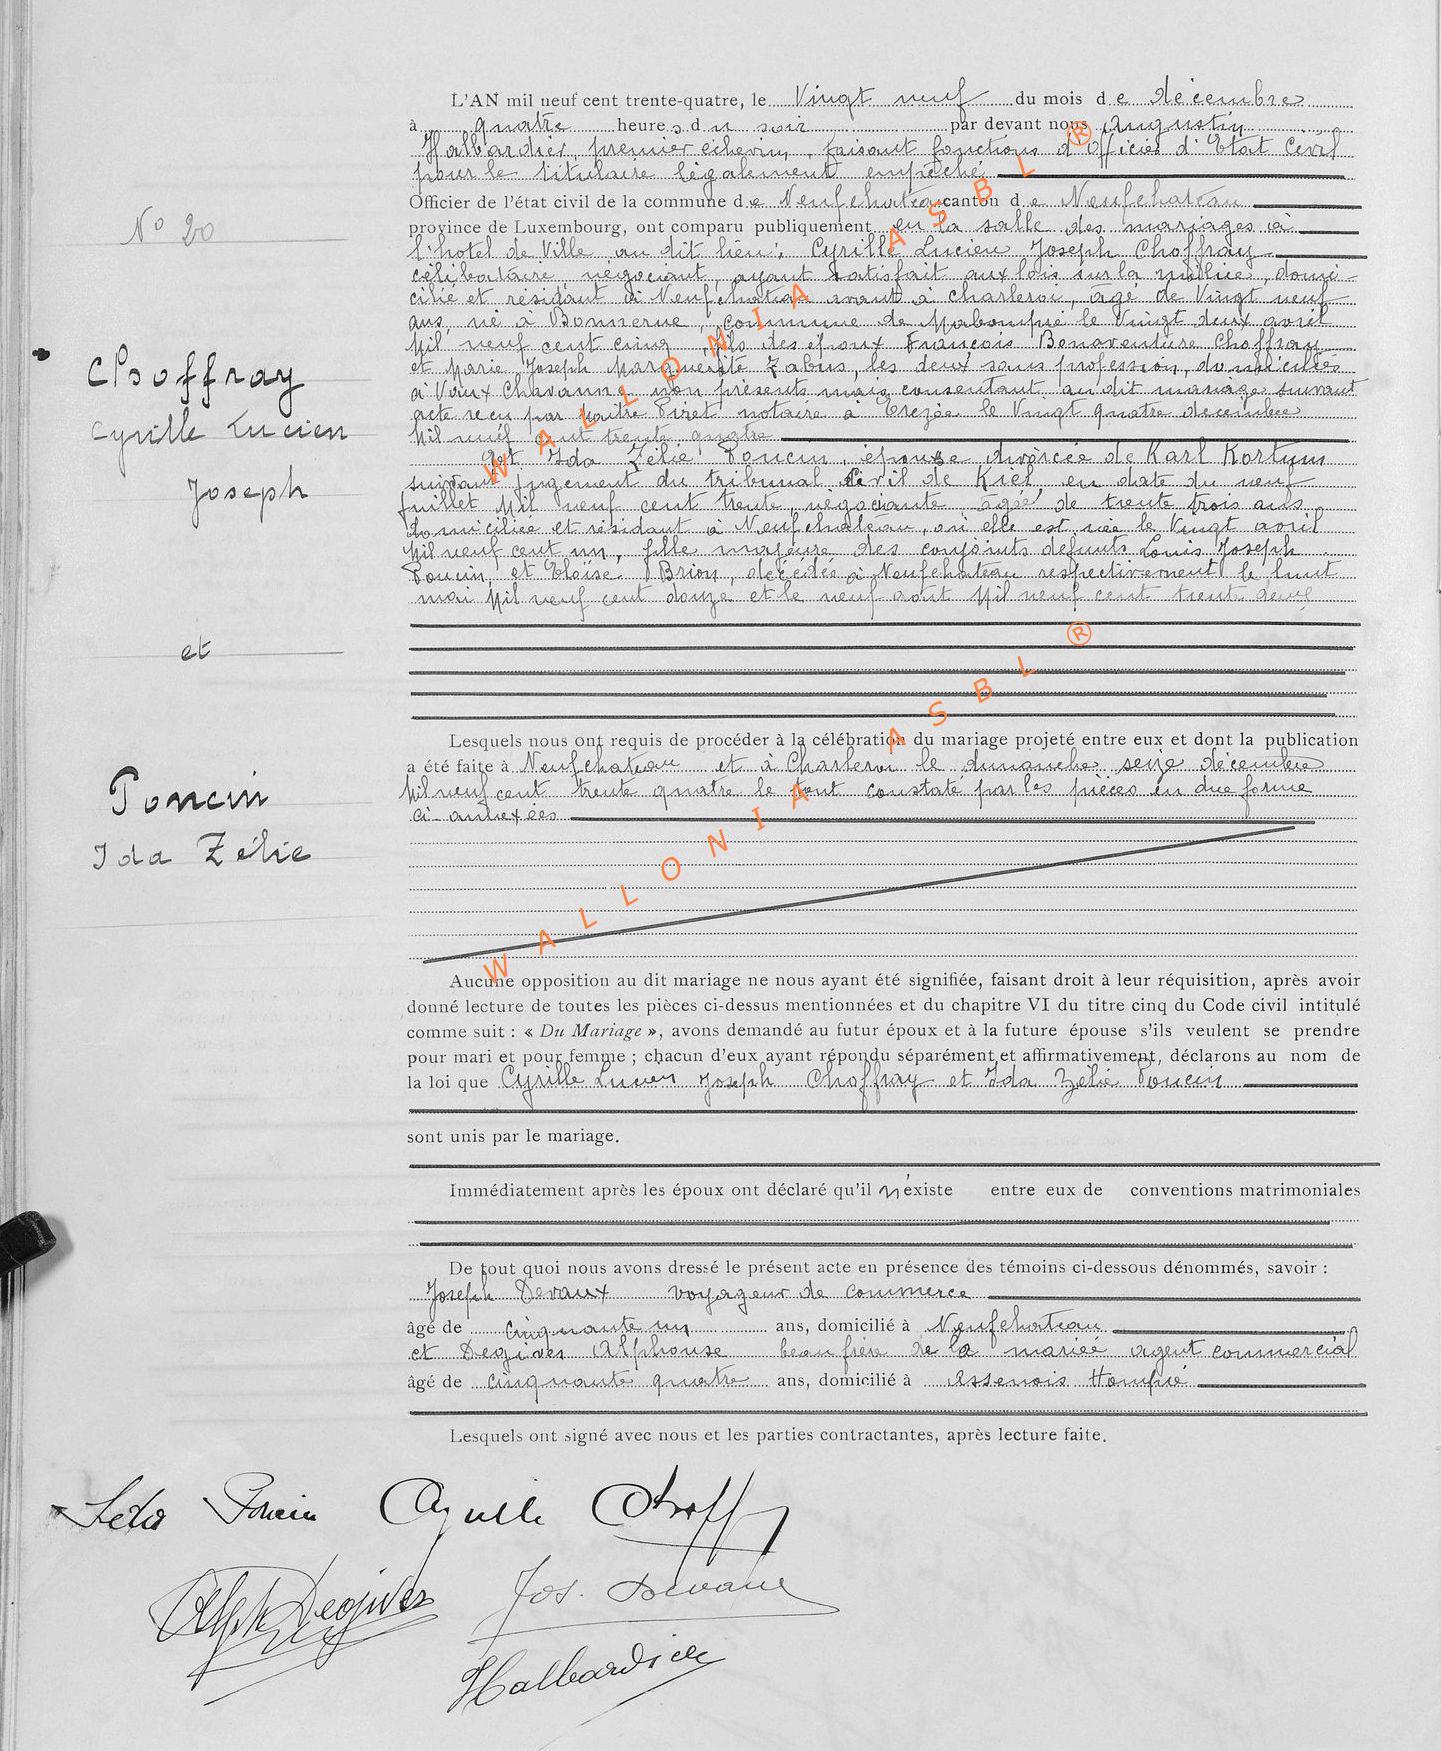 L'AN mil neuf cent trente-quatre, le Vingt neuf du mois de décembre
à quatre heures du soir par devant nous Augustin
Halbardier, premier échevin, faisant fonctions d'Officier d'Etat Civil
pour le titulaire légalement empêché
Officier de l'état civil de la commune de Neufchateau canton de Neufchateau
province de Luxembourg, ont comparu publiquement en la salle des mariages à
l'hotel de Ville au dit lieu: Cyrille Lucien Joseph Choffray
célibataire, négociant, ayant satisfait aux lois sur la milice, domi-
cilié et résidant à Neufchateau avant à Charleroi, âgé de Vingt neuf
ans, né à Bonnerue, commune de Mabompré le Vingt deux avril
Mil neuf cent cinq fils des époux François Bonaventure Choffray
et Marie Joseph Marguerite Zabus, les deux sans profession, domiciliés
à Vaux Chavanne non présents mais consentant au dit mariage suivant
acte reçu par Maître Piret notaire à Erezée le Vingt quatre décembre
Mil neuf cent trente quatre
Et Ida Zélie Poncin, épouse divorcée de Karl Kortum
suivant jugement du tribunal Civil de Kiel en date du neuf
juillet Mil neuf cent trente, négociante âgée de trente trois ans
domiciliée et résidant à Neufchateau, où elle est née le Vingt avril
Mil neuf cent un, fille majeure des conjoints défunts Louis Joseph
Poncin, et Eloïse Brion, décédés à Neufchateau respectivement le huit
mai Mil neuf cent douze et le neuf août Mil neuf cent trente deux
N° 20
Choffray
Cyrille Lucien
Joseph
et
Poncin
Ida Zélie
Lesquels nous ont requis de procéder à la célébration du mariage projeté entre eux et dont la publication
a été faite à Neufchateau et à Charleroi le dimanche seize décembre
Mil neuf cent trente quatre le tout constaté par les pièces en due forme
ci-annexées
Aucune opposition au dit mariage ne nous ayant été signifiée, faisant droit à leur réquisition, après avoir
donné lecture de toutes les pièces ci-dessus mentionnées et du chapitre VI du titre cinq du Code civil intitulé
comme suit : « Du Mariage », avons demandé au futur époux et à la future épouse s'ils veulent se prendre
pour mari et pour femme ; chacun d'eux ayant répondu séparément et affirmativement, déclarons au nom de
la loi que Cyrille Lucien Joseph Choffray et Ida Zélie Poncin
sont unis par le mariage.
Immédiatement après les époux ont déclaré qu'il n'existe entre eux de conventions matrimoniales
De tout quoi nous avons dressé le présent acte en présence des témoins ci-dessous dénommés, savoir :
Joseph Devaux voyageur de commerce
âgé de cinquante un ans, domicilié à Neufchateau
et Degives Alphonse beau frère de la mariée agent commercial
âgé de cinquante quatre ans, domicilié à Assenois Hompré
Lesquels ont signé avec nous et les parties contractantes, après lecture faite.
Ida Poncin Cyrille Choffray
Alph Degives Jos. Devaux
Halbardier
WALLONIA ASBL ®
WALLONIA ASBL ®